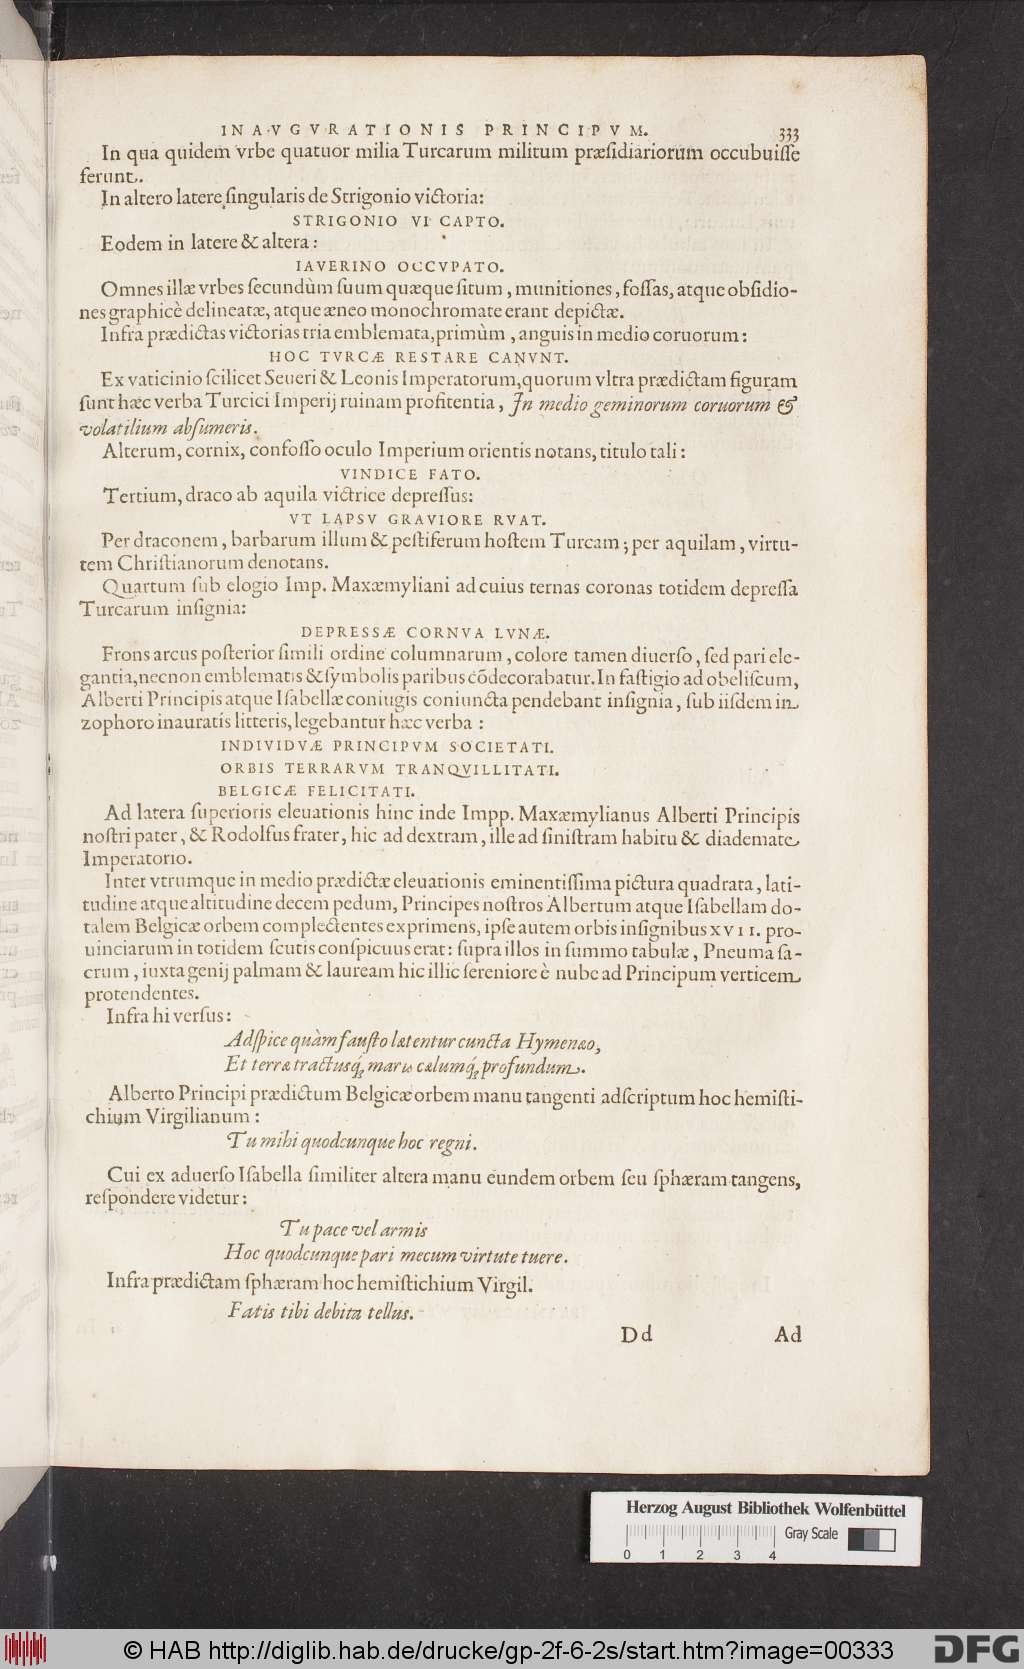 INAVGVRATIONIS PRINCIPVM. 333
In qua quidem vrbe quatuor milia Turcarum militum præsidiariorum occubuisse
ferunt.
In altero latere singularis de Strigonio victoria:
STRIGONIO VI CAPTO.
Eodem in latere & altera:
IAVERINO OCCVPATO.
Omnes illæ vrbes secundùm suum quæque situm, munitiones, fossas, atque obsidio-
nes graphicè delineatæ, atque æneo monochromate erant depictæ.
Infra prædictas victorias tria emblemata, primùm, anguis in medio coruorum:
HOC TVRCÆ RESTARE CANVNT.
Ex vaticinio scilicet Seueri & Leonis Imperatorum, quorum vltra prædictam figuram
sunt hæc verba Turcici Imperij ruinam profitentia, In medio geminorum coruorum &
volatilium absumeris.
Alterum, cornix, confosso oculo Imperium orientis notans, titulo tali:
VINDICE FATO.
Tertium, draco ab aquila victrice depressus:
VT LAPSV GRAVIORE RVAT.
Per draconem, barbarum illum & pestiferum hostem Turcam; per aquilam, virtu-
tem Christianorum denotans.
Quartum sub elogio Imp. Maxæmyliani ad cuius ternas coronas totidem depressa
Turcarum insignia:
DEPRESSÆ CORNVA LVNÆ.
Frons arcus posterior simili ordine columnarum, colore tamen diuerso, sed pari ele-
gantia, necnon emblematis & symbolis paribus cõdecorabatur. In fastigio ad obeliscum,
Alberti Principis atque Isabellæ coniugis coniuncta pendebant insignia, sub iisdem in
zophoro inauratis litteris, legebantur hæc verba:
INDIVIDVÆ PRINCIPVM SOCIETATI.
ORBIS TERRARVM TRANQVILLITATI.
BELGICÆ FELICITATI.
Ad latera superioris eleuationis hinc inde Impp. Maxæmylianus Alberti Principis
nostri pater, & Rodolfus frater, hic ad dextram, ille ad sinistram habitu & diademate
Imperatorio.
Inter vtrumque in medio prædictæ eleuationis eminentissima pictura quadrata, lati-
tudine atque altitudine decem pedum, Principes nostros Albertum atque Isabellam do-
talem Belgicæ orbem complectentes exprimens, ipse autem orbis insignibus XVII. pro-
uinciarum in totidem scutis conspicuus erat: supra illos in summo tabulæ, Pneuma sa-
crum, iuxta genij palmam & lauream hic illic sereniore è nube ad Principum verticem
protendentes.
Infra hi versus:
Adspice quàm fausto lætentur cuncta Hymenæo,
Et terræ tractusq́; maris cælumq́; profundum.
Alberto Principi prædictum Belgicæ orbem manu tangenti adscriptum hoc hemisti-
chium Virgilianum:
Tu mihi quodcunque hoc regni.
Cui ex aduerso Isabella similiter altera manu eundem orbem seu sphæram tangens,
respondere videtur:
Tu pace vel armis
Hoc quodcunque pari mecum virtute tuere.
Infra prædictam sphæram hoc hemistichium Virgil.
Fatis tibi debita tellus.
Dd Ad
Herzog August Bibliothek Wolfenbüttel
Gray Scale
0 1 2 3 4
© HAB http://diglib.hab.de/drucke/gp-2f-6-2s/start.htm?image=00333
DFG